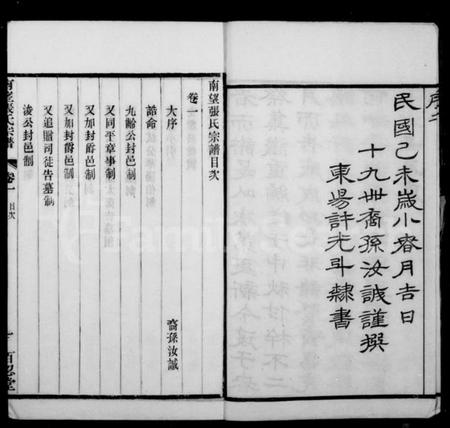 序六
民國己未歲小春月吉日
十九世裔孫汝誠謹撰
東場許光斗隸書
南望張氏宗譜目次
卷一
大序
裔孫汝誠
誥命
九齡公封邑制
又同平章事制
又加封爵邑制
又加封爵邑制
又追贈司徒告墓制
淩公封邑制
南望張氏宗譜
卷一
目次
一
百忍堂